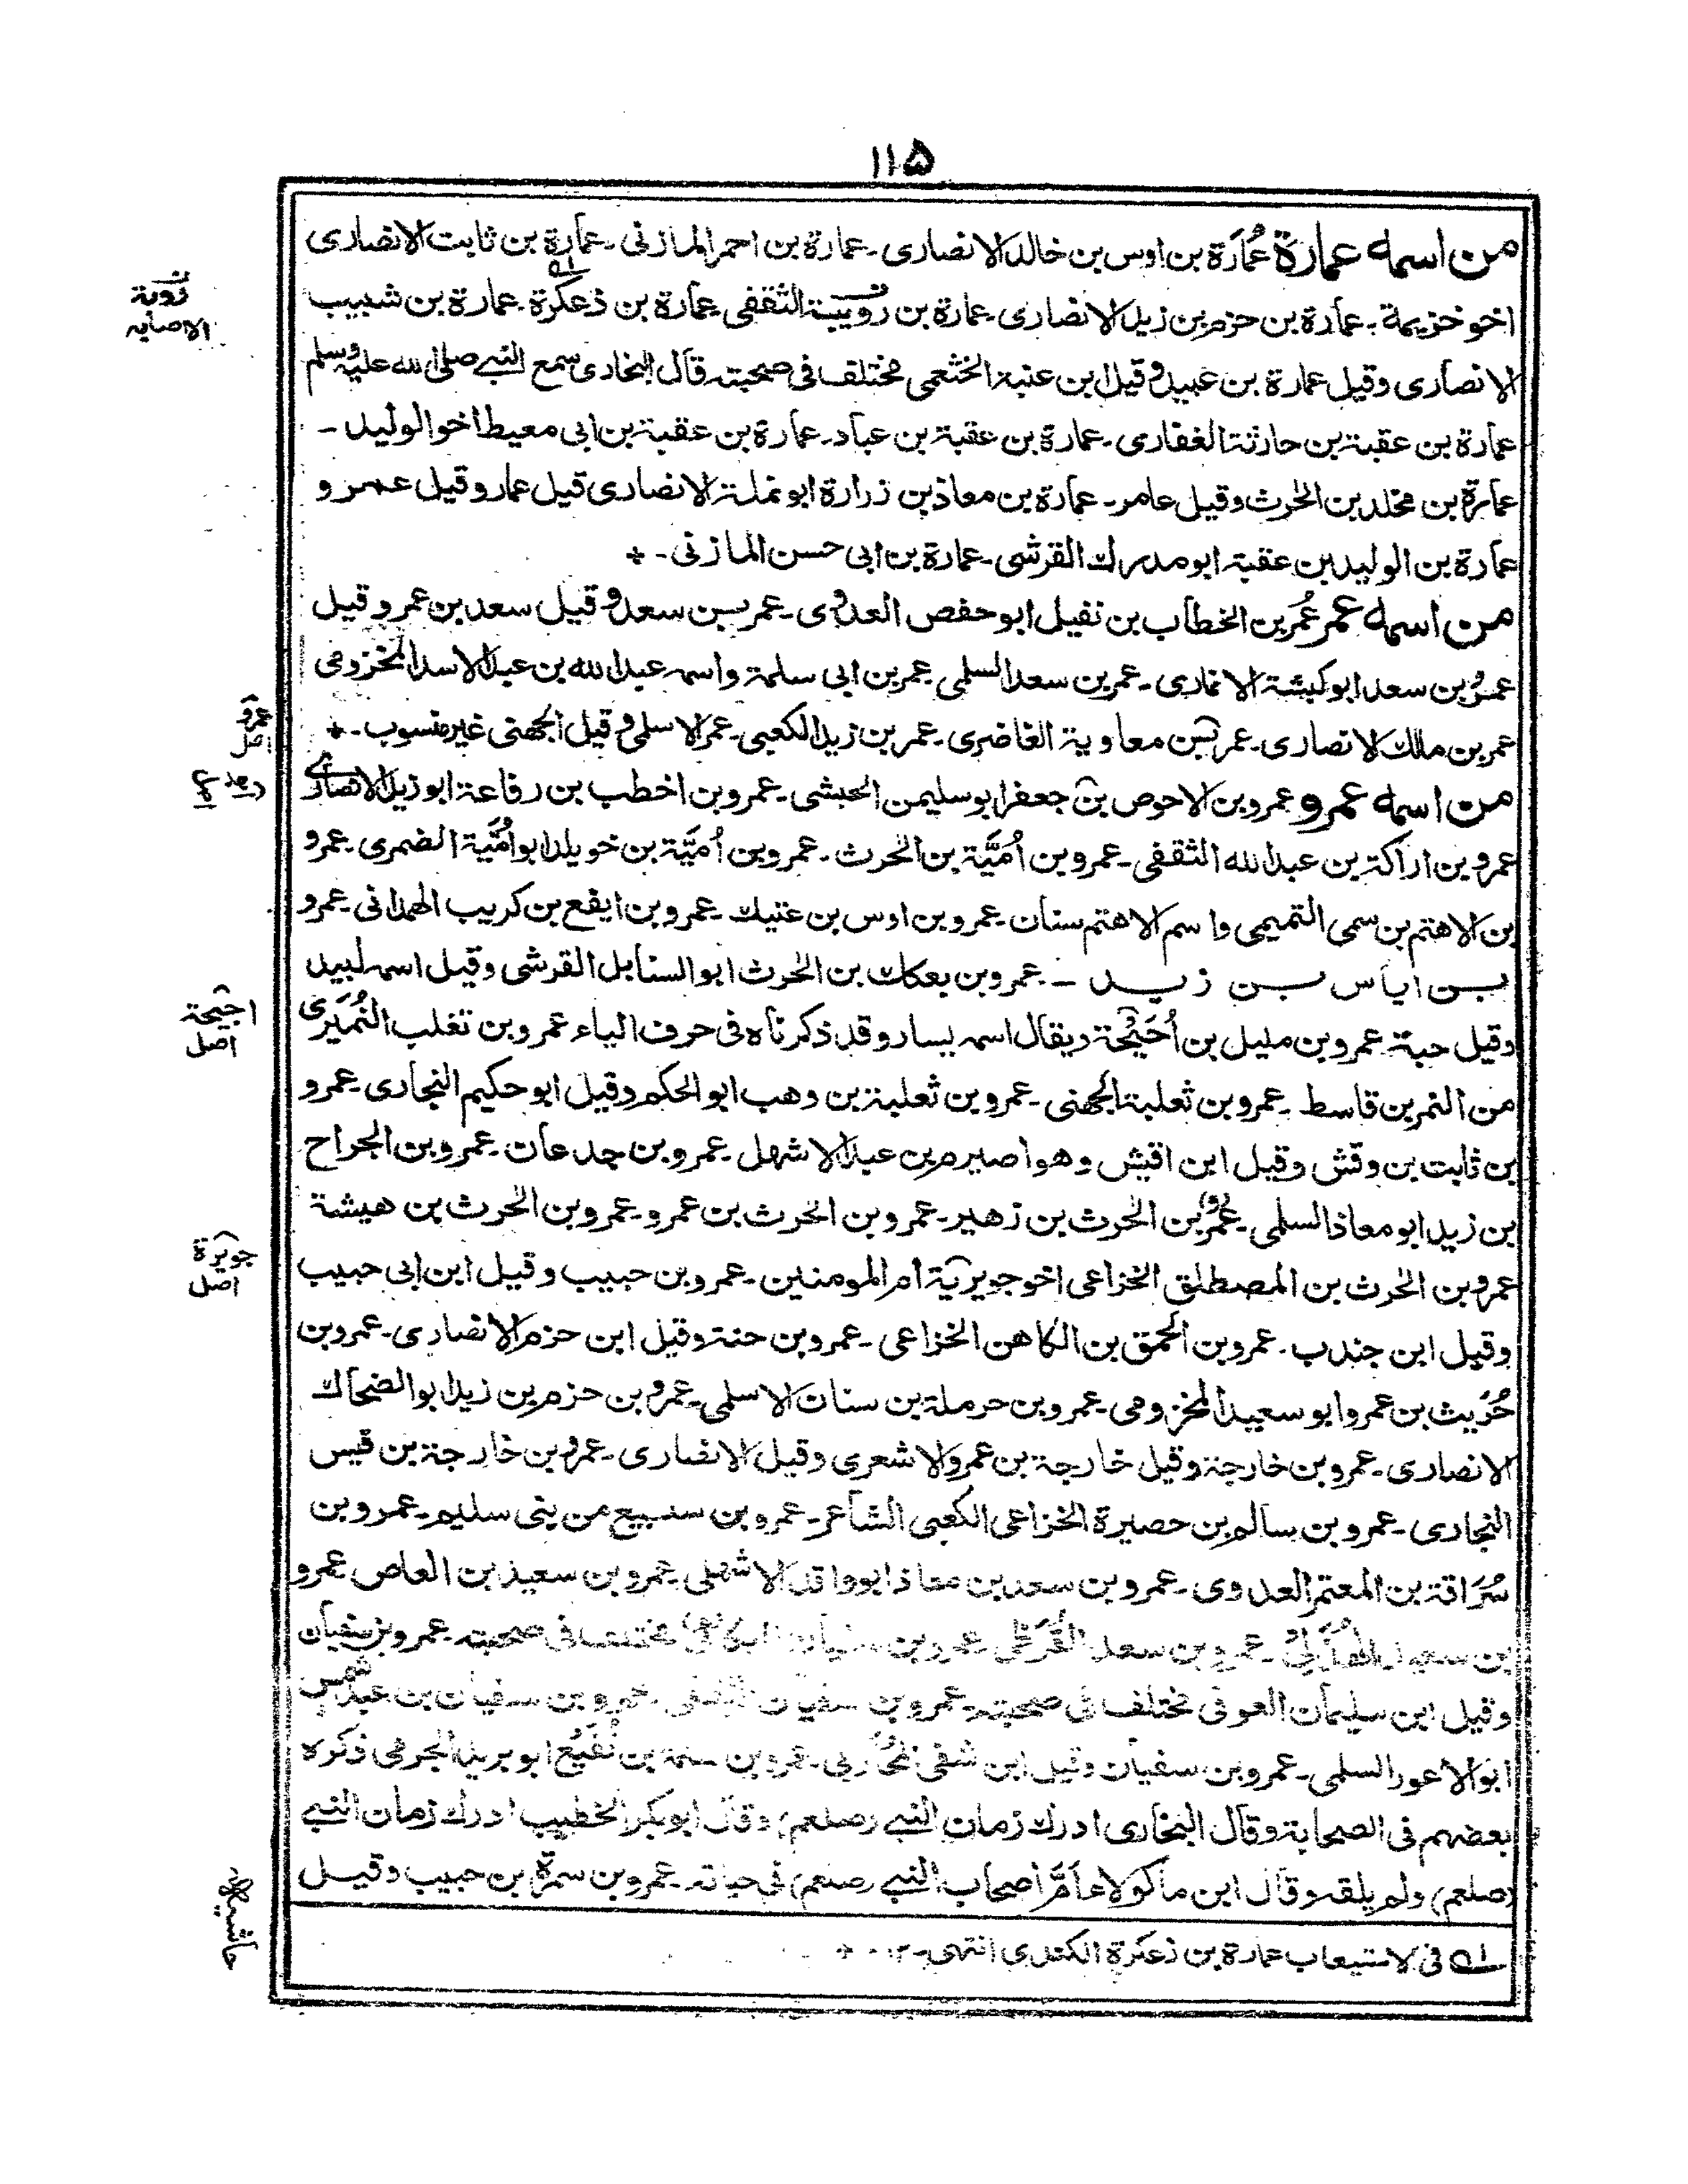 ۱۱۵
من اسمه عمارة عُمَارَة بن اوس بن خالد الانصاری ۔ عمارة بن احمر المازنی ۔ عمارة بن ثابت الانصاری
اخو خزيمة ۔ عمارة بن حزم بن زيد الانصاری ۔ عمارة بن رويبة الثقفی ۔ عمارة بن زعكرة ۔ عمارة بن شبيب
الانصاری وقيل عمارة بن عبيد وقيل ابن عتبة الخثعمی مختلف فی صحبته قال البخاری سمع النبے صلی الله عليه وسلم
عمارة بن عقبة بن حارثة الغفاری ۔ عمارة بن عقبة بن عباد ۔ عمارة بن عقبة بن ابی معيط اخو الوليد ۔
عمارة بن مخلد بن الحرث وقيل عامر ۔ عمارة بن معاذ بن زرارة ابو نملة الانصاری قيل عمار وقيل عمرو
عمارة بن الوليد بن عقبة ابو مدرك القرشی ۔ عمارة بن ابی حسن المازنی ۔
من اسمه عمر عُمَر بن الخطاب بن نفيل ابو حفص العدوی ۔ عمر بن سعد وقيل سعد بن عمر وقيل
عمرو بن سعد ابو كبشة الانماری ۔ عمر بن سعد السلمی عمر بن ابی سلمة واسمه عبد الله بن عبد الاسد المخزومی
عمر بن مالك الانصاری ۔ عمر بن معاوية الغاضری ۔ عمر بن زيد الكعبی ۔ عمر الاسلمی وقيل الجهنی غير منسوب ۔
من اسمه عمرو عمرو بن الاحوص بن جعفر ابو سليمن الحبشی ۔ عمرو بن اخطب بن رفاعة ابو زيد الانصاری
عمرو بن اراكة بن عبد الله الثقفی ۔ عمرو بن اُمَيَّة بن الحرث ۔ عمرو بن اُميَّة بن خويلد ابو اُمَيَّة الضمری ۔ عمرو
بن الاهتم بن سمی التميمی واسم الاهتم سنان ۔ عمرو بن اوس بن عتيك ۔ عمرو بن ايفع بن كريب الهمدانی ۔ عمرو
بن اياس بن زيد ۔ عمرو بن بعكك بن الحرث ابو السنابل القرشی وقيل اسمه لبيد
وقيل حبة ۔ عمرو بن مليل بن اُحَيْحَة ويقال اسمه يسار وقد ذكرناه فی حرف الياء عمرو بن تغلب النُمَيَری
من النمر بن قاسط ۔ عمرو بن ثعلبة الجهنی ۔ عمرو بن ثعلبة بن وهب ابو الحكم وقيل ابو حكيم النجاری ۔ عمرو
بن ثابت بن وقش وقيل ابن اقيش وهو اصيرم بن عبد الاشهل ۔ عمرو بن جدعان ۔ عمرو بن الجراح
بن زيد ابو معاذ السلمی ۔ عمرو بن الحرث بن زهير ۔ عمرو بن الحرث بن عمرو ۔ عمرو بن الحرث بن هيشة
عمرو بن الحرث بن المصطلق الخزاعی اخو جويرية ام المومنين ۔ عمرو بن حبيب وقيل ابن ابی حبيب
وقيل ابن جندب ۔ عمرو بن الحمق بن الكاهن الخزاعی ۔ عمرو بن حنة وقيل ابن حزم الانصاری ۔ عمرو بن
حُرَيث بن عمرو ابو سعيد المخزومی ۔ عمرو بن حرملة بن سنان الاسلمی ۔ عمرو بن حزم بن زيد ابو الضحاك
الانصاری ۔ عمرو بن خارجة وقيل خارجة بن عمرو الاشعری وقيل الانصاری ۔ عمرو بن خارجة بن قيس
النجاری ۔ عمرو بن سالم بن حصيرة الخزاعی الكعبی الشاعر ۔ عمرو بن سبيع من بنی سليم ۔ عمرو بن
سُرَاقة بن المعتمر العدوی ۔ عمرو بن سعد بن معاذ ابو واقد الاشهلی عمرو بن سعيد بن العاص عمرو
بن سعيد الهذلی ۔ عمرو بن سعد القُرَظی عمرو بن سفيان مختلف فی صحبته عمرو بن سفيان
وقيل ابن سليمان العوفی مختلف فی صحبته ۔ عمرو بن سفيان الثقفی ۔ عمرو بن سفيان بن عبد شمس
ابو الاعور السلمی ۔ عمرو بن سفيان وقيل ابن شفی المحاربی ۔ عمرو بن سلمة بن نُفَيع ابو بريد الجرمی ذكره
بعضهم فی الصحابة وقال البخاری ادرك زمان النبے (صلعم) وقال ابو بكر الخطيب ادرك زمان النبے
(صلعم) ولم يلقه وقال ابن ماكولا عامَّ اصحاب النبے (صلعم) فی حياته ۔ عمرو بن سمرة بن حبيب وقيل
له فی الاستيعاب عمارة بن زعكرة الكندی انتهی ۔ ۱۲ ۔
الاصابه
عمرو
اصل
احيحة
اصل
جويرة
اصل
حاشيه